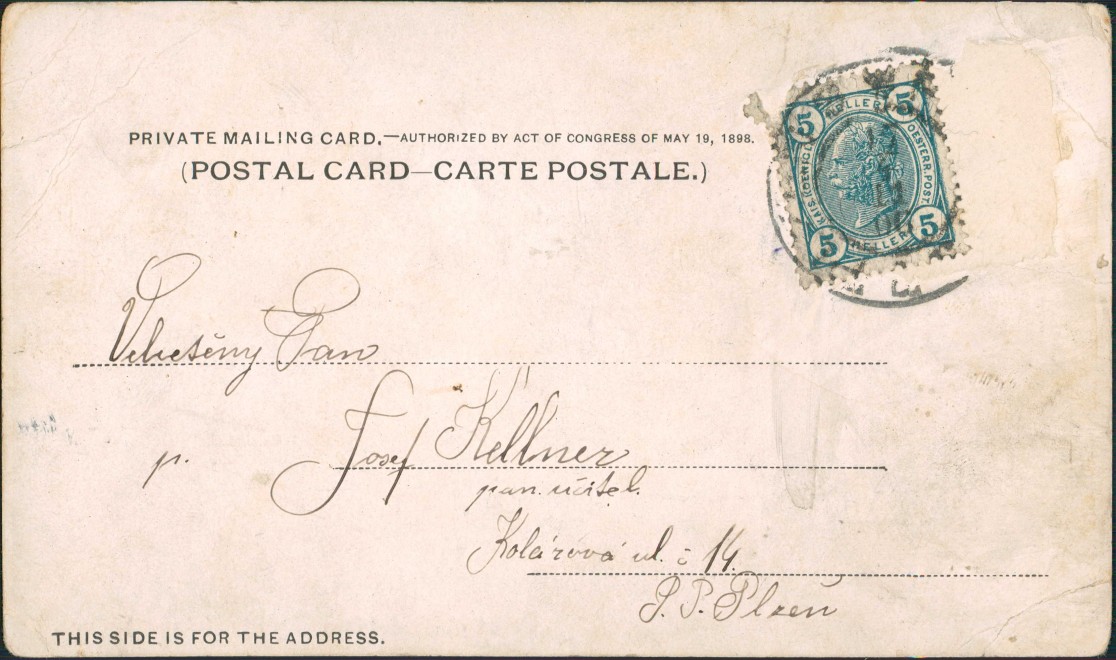 PRIVATE MAILING CARD.—AUTHORIZED BY ACT OF CONGRESS OF MAY 19, 1898.
(POSTAL CARD—CARTE POSTALE.)
5 HELLER 5
KAIS. KOENIGL.
OESTERR. POST
5 HELLER 5
Velectěný Pan
p. Josef Kellner
pan. učitel.
Kolárová ul. č 14.
P. P. Plzeň
THIS SIDE IS FOR THE ADDRESS.